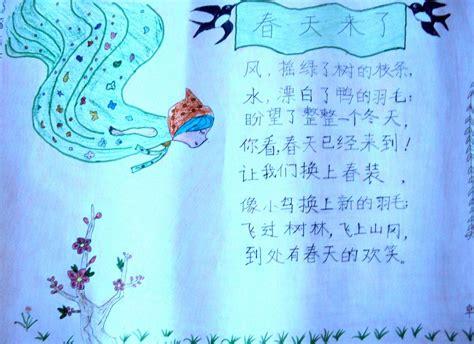 春天来了
风，摇绿了树的枝条，
水，漂白了鸭的羽毛；
盼望了整整一个冬天，
你看，春天已经来到！
让我们换上春装，
像小鸟换上新的羽毛；
飞过树林，飞上山冈，
到处有春天的欢笑。